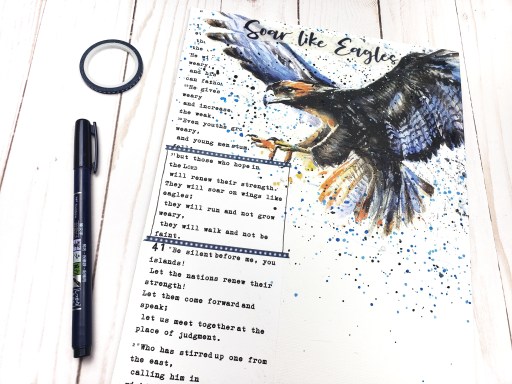 Soar like Eagles
the
He gi
weary
and
can fathom
"He gives
weary
and increase
the weak.
"Even youths gr
weary,
and young men
"but those who hope in
the LORD
will renew their strength.
They will soar on wings like
eagles;
they will run and not grow
weary,
they will walk and not be
faint.
41 "Be silent before me, you
islands!
Let the nations renew their
strength!
Let them come forward and
speak;
let us meet together at the
place of judgment.
2"Who has stirred up one from
the east,
calling him in